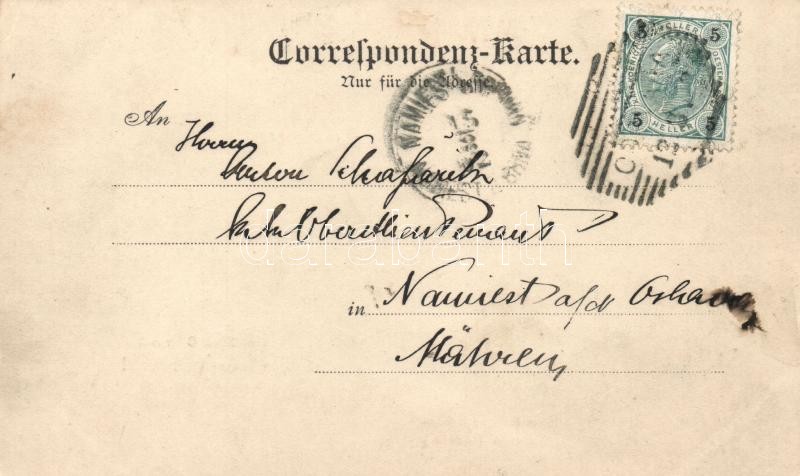 Correspondenz-Karte.
Nur für die Adresse.
An Herrn
Anton
k.k. Oberstlieutenant
in Namiest a/d Oslawa
Mähren
NAMIEST
5 HELLER 5
5 HELLER 5
darabanth